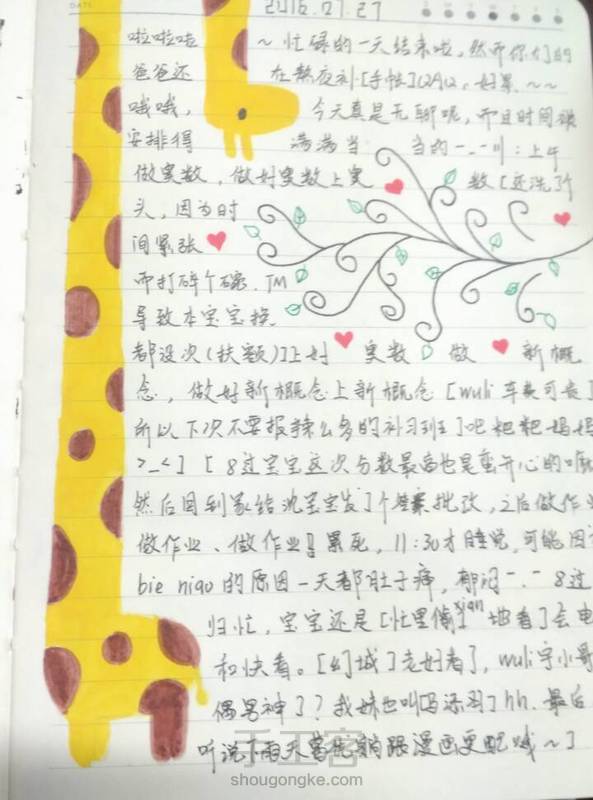 DATE
2016.07.27
啦啦啦啦 ~ 忙碌的一天结束啦,然而你们的
爸爸还 在熬夜补[手帐]QAQ,好累.~~
哦哦, 今天真是无聊呢,而且时间
安排得 满满当 当的-.-|||:上午
做奥数,做好奥数上奥 数[还洗了个
头,因为时
间紧张
而打碎个碗.TM
导致本宝宝
都没次(扶额)]上好 奥数 做 新概
念,做好新概念上新概念[wuli
所以下次不要报辣么多的补习班了吧粑粑妈妈
>_<] [8过宝宝这次分数最高也是蛮开心的
然后回到家给 宝宝发了个 批改,之后做作业
做作业、做作业!!累死,11:30才睡觉,可能因
bie niao的原因一天都肚子痛,郁闷-.- 8过
归忙,宝宝还是[忙里偷xian地看]会电
和快看。[幻城]老好看了,wuli宇小哥
偶男神了?我妹也叫冯添羽了hh.最后
听说下雨天 跟漫画更配哦~]
手工客
shougongke.com